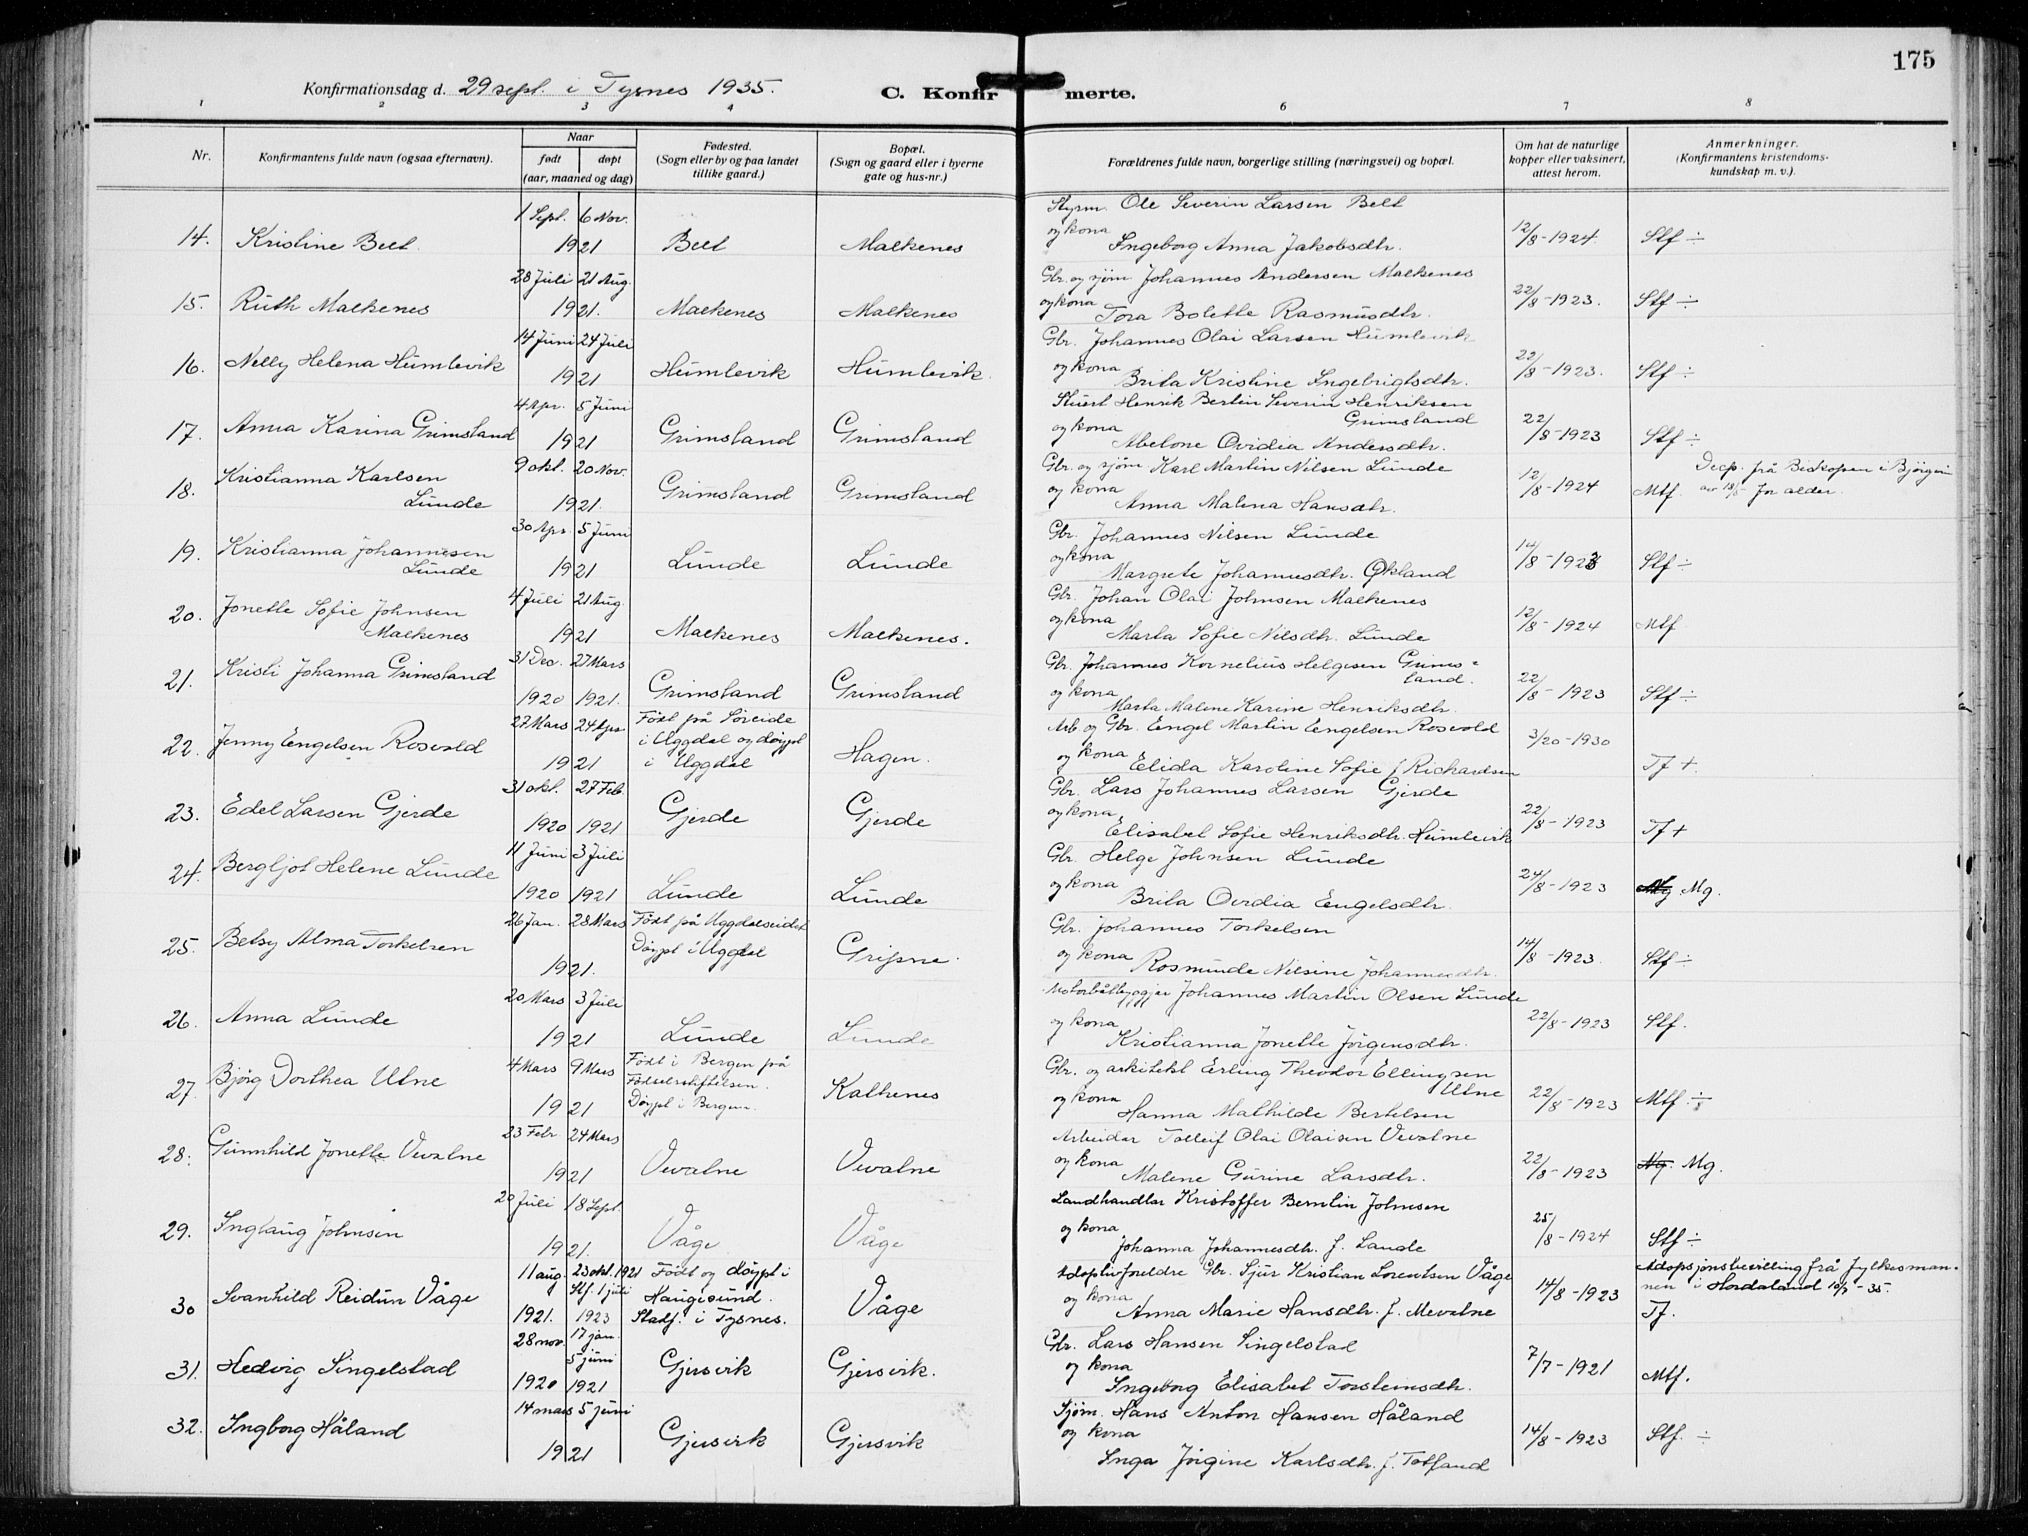 175
Konfirmationsdag d. 29 sept. i Tysnes 1935.
C. Konfirmerte.
1 2 3 4 6 7 8
Nr.
Konfirmantens fulde navn (ogsaa efternavn).
Naar
født døpt
(aar, maaned og dag)
Fødested.
(Sogn eller by og paa landet
tillike gaard.)
Bopæl.
(Sogn og gaard eller i byerne
gate og hus-nr.)
Forældrenes fulde navn, borgerlige stilling (næringsvei) og bopæl.
Om hat de naturlige
kopper eller vaksinert,
attest herom.
Anmerkninger.
(Konfirmantens kristendoms-
kundskap m. v.).
1 Sept. 6 Nov. Styrm. Ole Severin Larsen Belt
14. Kristine Belt 1921 Belt Malkenes og kona Ingeborg Anna Jakobsdtr. 12/8-1924 Stf ÷
28 Juli 21 Aug. Gbr. og sjøm. Johannes Andersen Malkenes
15. Ruth Malkenes 1921. Malkenes Malkenes og kona Tora Bolette Rasmusdtr. 22/8-1923. Stf ÷
14 Juni 24 Juli Gbr. Johannes Olai Larsen Humlevik
16. Nelly Helena Humlevik 1921 Humlevik Humlevik og kona Brita Kristine Ingebrigtsdtr. 22/8-1923. Stf ÷
4 Apr. 5 Juni Stuert Henrik Bertin Severin Henriksen
Grimsland
17. Anna Karina Grimsland 1921 Grimsland Grimsland og kona Abelone Ovidia Andersdtr. 22/8-1923 Stf ÷
9 okt. 20 Nov. Gbr. og sjøm. Karl Martin Nilsen Lunde Decp. frå Biskopen i Bjørgvin
18. Kristianna Karlsen
Lunde 1921. Grimsland Grimsland og kona Anna Malena Hansdtr. 12/8-1924 Mtf. av 18/5 for alder.
30 Apr. 5 Juni Gbr. Johannes Nilsen Lunde
19. Kristianna Johannesen
Lunde 1921 Lunde Lunde og kona Margrete Johannesdtr. Økland 14/8-1923 Stf ÷
4 Juli 21 Aug. Gbr. Johan Olai Johnsen Malkenes
20. Jonette Sofie Johnsen
Malkenes 1921 Malkenes Malkenes. og kona Marta Sofie Nilsdtr. Lunde 12/8-1924 Mtf
31 Dec. 27 Mars Gbr. Johannes Kornelius Helgesen Grims-
land.
21. Kristi Johanna Grimsland 1920 1921. Grimsland Grimsland og kona Marta Malene Karine Henriksdtr. 22/8-1923 Stf ÷
27 Mars 24 Apr Født på Søreide Arb. og Gbr. Engel Martin Engelsen Rosvold
22. Jenny Engelsen Rosvold 1921 i Uggdal og døypt
i Uggdal Hagen. og kona Elida Karoline Sofie f Richardsen 3/20-1930 Tf +.
31 okt. 27 Feb Gbr. Lars Johannes Larsen Gjerde
23. Edel Larsen Gjerde 1920 1921 Gjerde Gjerde og kona Elisabet Sofie Henriksdtr. Humlevik 22/8-1923 Tf +
11 Juni 3 Juli Gbr. Helge Johnsen Lunde
24. Bergljot Helene Lunde 1920 1921 Lunde Lunde og kona Brita Ovidia Engelsdtr. 24/8-1923 Mg.
26 Jan. 28 Mars Født på Uggdalseidet Gbr. Johannes Torkelsen
25. Betsy Alma Torkelsen 1921. Døypt i Uggdal Gripne. og kona Rosmunde Nilsine Johannesdtr. 14/8-1923. Stf ÷
20 Mars 3 Juli Motorbåtbyggjar Johannes Martin Olsen Lunde
26. Anna Lunde 1921 Lunde Lunde og kona Kristianna Jonette Jørgensdtr. 22/8-1923 Stf.
4 Mars 9 Mars Født i Bergen på Gbr. og arkitekt Erling Theodor Ellingsen
Utne
27. Bjørg Dorthea Utne 1921 Fødselsstiftelsen.
Døypt i Bergen. Kalhenes og kona Hanna Mathilde Bertelsen 22/8-1923 Mtf. ÷
23 Febr 24 Mars Arbeidar Tolleif Olai Olaisen Vevatne
28. Gunnhild Jonette Vevatne 1921 Vevatne Vevatne og kona Malene Gurine Larsdtr. 22/8-1923 Ng. Mg.
20 Juli 18 Sept. Landhandlar Kristoffer Berntin Johnsen
29. Inglaug Johnsen 1921. Våge Våge og kona Johanna Johannesdtr. f. Lande 25/8-1924 Stf ÷
11 aug. 23 okt. 1921 Født og døypt i Adoptivforeldre Gbr. Sjur Kristian Lorentsen Våge Adopsjonsbevilling frå fylkesman-
30 Svanhild Reidun Våge 1921. Stf. 1 juli 1923 Haugesund.
Stadf. i Tysnes. Våge og kona Anna Marie Hansdtr. f. Mevatne 14/8-1923 nen i Hordaland 10/7-35.
Tf.
28 nov. 17 jan. Gbr. Lars Hansen Singelstad
31. Hedvig Singelstad 1920 5 juni 1921 Gjersvik Gjersvik. og kona Ingeborg Elisabet Torsteinsdtr. 7/7-1921 Mtf.
14 mars 5 juni Sjøm. Hans Anton Hansen Håland
32. Ingborg Håland 1921 Gjersvik Gjersvik og kona Inga Jørgine Karlsdtr. f. Totland 14/8-1923 Stf. ÷